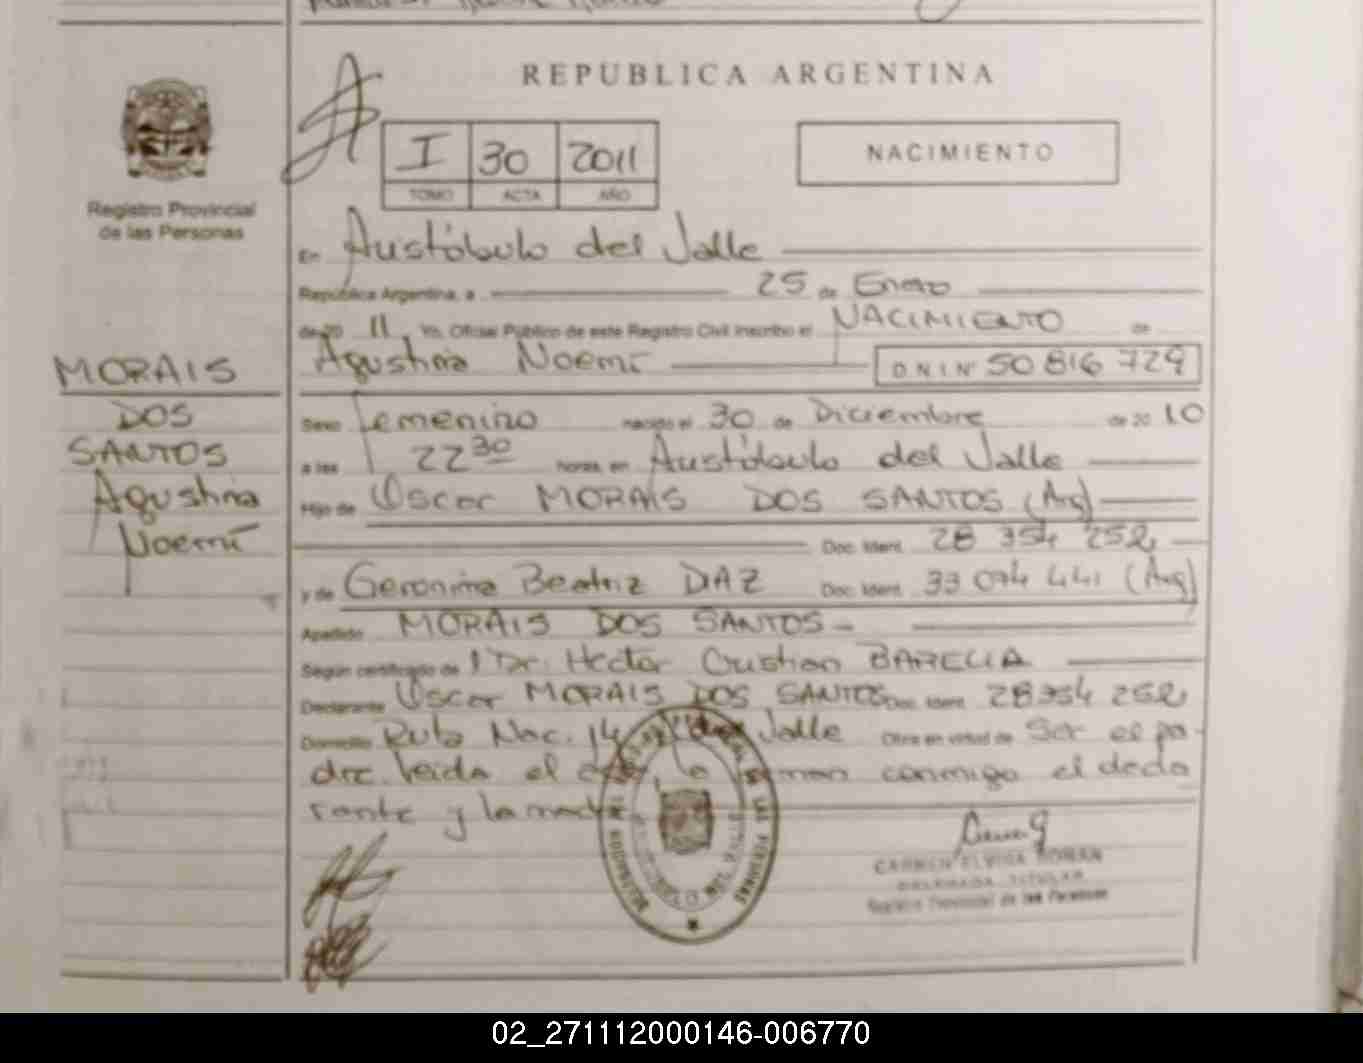 REPUBLICA ARGENTINA
I 30 2011
TOMO ACTA AÑO
NACIMIENTO
Registro Provincial
de las Personas
En Aristóbulo del Valle
República Argentina, a 25 de Enero
de 20 11, Yo, Oficial Público de este Registro Civil inscribo el NACIMIENTO de
Agustina Noemí D.N.I. Nº 50 816 729
MORAIS
DOS
SANTOS
Agustina
Noemí
Sexo femenino nacido el 30 de Diciembre de 20 10
a las 22 30 horas, en Aristóbulo del Valle
Hijo de Oscar MORAIS DOS SANTOS (Arg)
Doc. Ident. 28 354 252
y de Geronima Beatriz DIAZ Doc. Ident. 33 074 441 (Arg)
Apellido MORAIS DOS SANTOS
Según certificado de Dr. Hector Cristian
Declarante Oscar MORAIS DOS SANTOS Doc. Ident. 28354 252
Domicilio Ruta Nac. 14 Valle Obra en virtud de Ser el pa-
dre leida el conmigo el decla
rante y la
CARMEN ELVIRA
DELEGADA TITULAR
Registro Provincial de las Personas
02_271112000146-006770